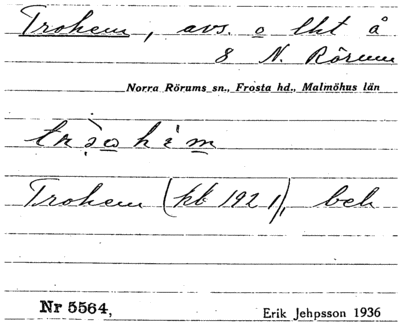 Trohem, avs. o lht å
8 N. Rörum
Norra Rörums sn., Frosta hd., Malmöhus län
Trohem (kb 1921), beb
Nr 5564, Erik Jehpsson 1936